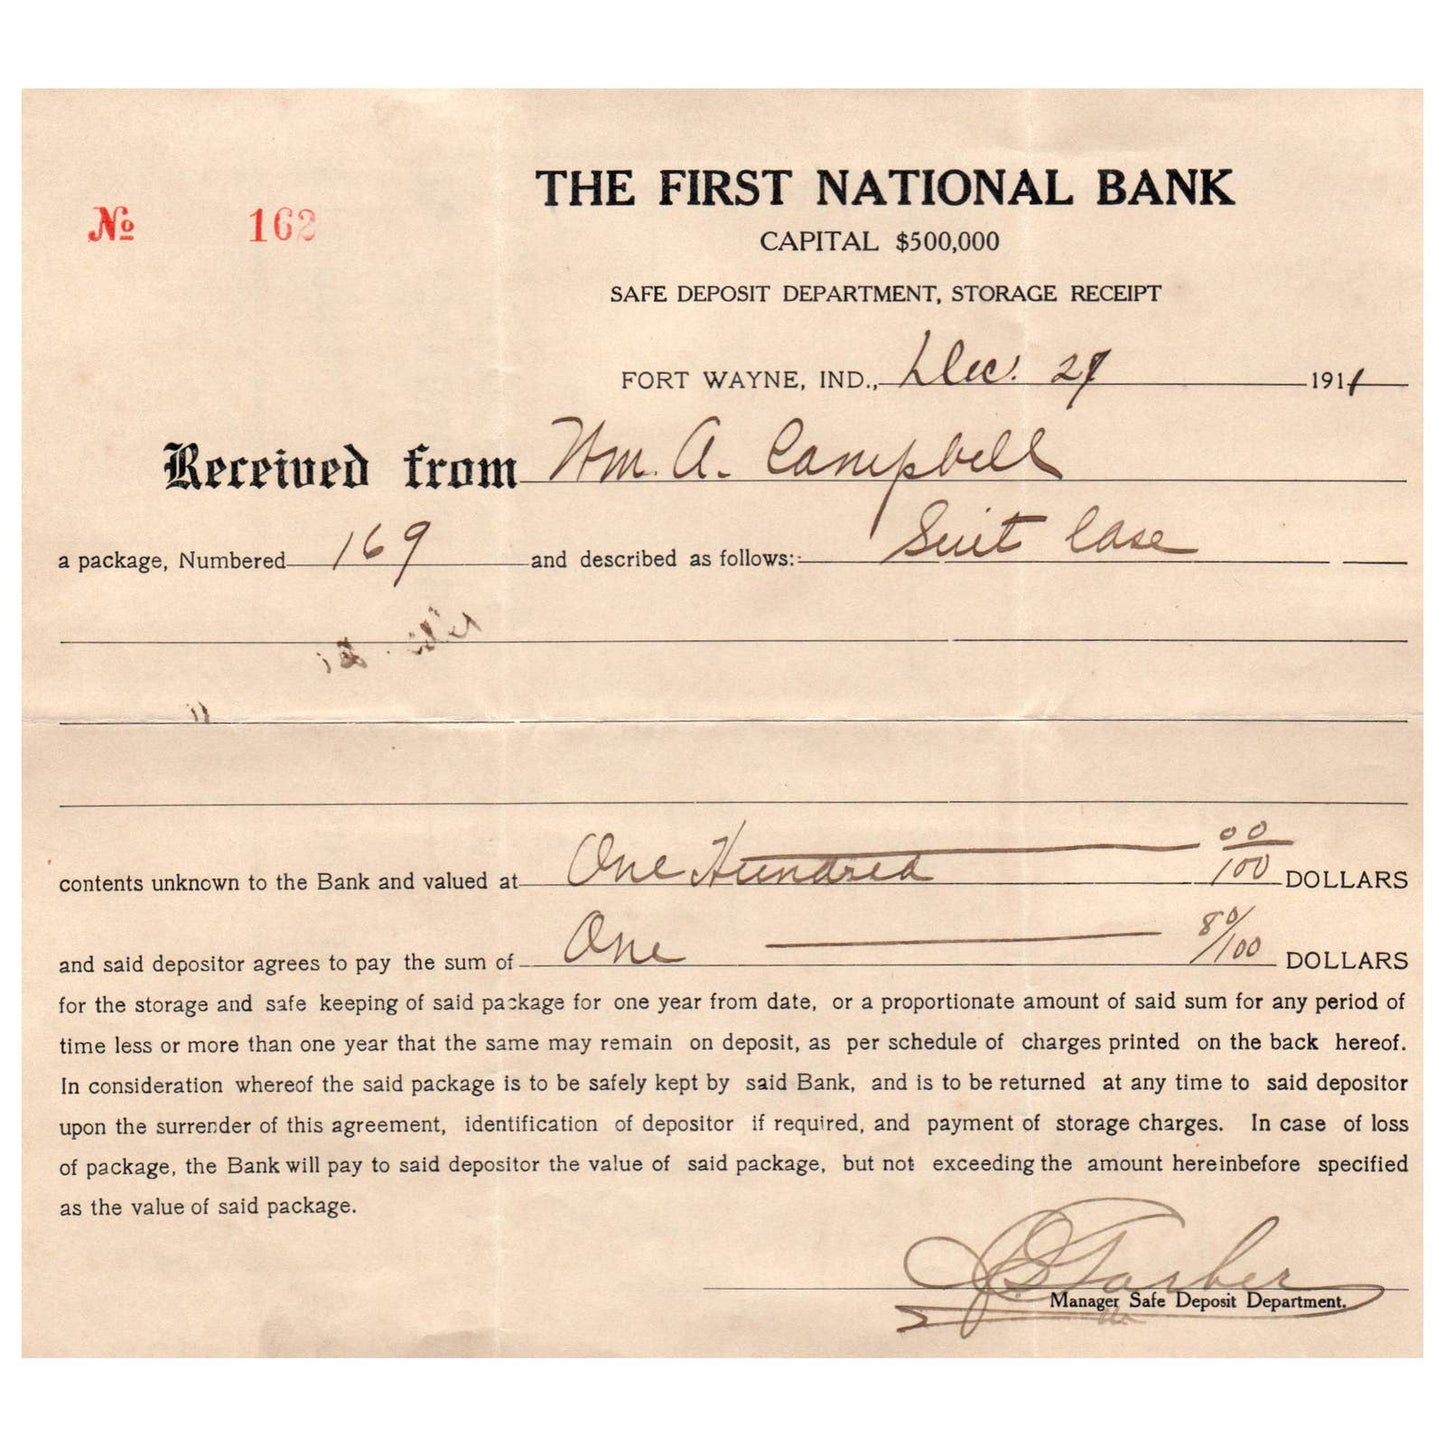 THE FIRST NATIONAL BANK
№ 162
CAPITAL $500,000
SAFE DEPOSIT DEPARTMENT, STORAGE RECEIPT
FORT WAYNE, IND., Dec. 27 1911
Received from Wm. A. Campbell
a package, Numbered 169 and described as follows: Suit Case
contents unknown to the Bank and valued at One Hundred 00/100 DOLLARS
and said depositor agrees to pay the sum of One 80/100 DOLLARS
for the storage and safe keeping of said package for one year from date, or a proportionate amount of said sum for any period of
time less or more than one year that the same may remain on deposit, as per schedule of charges printed on the back hereof.
In consideration whereof the said package is to be safely kept by said Bank, and is to be returned at any time to said depositor
upon the surrender of this agreement, identification of depositor if required, and payment of storage charges. In case of loss
of package, the Bank will pay to said depositor the value of said package, but not exceeding the amount hereinbefore specified
as the value of said package.
Manager Safe Deposit Department.